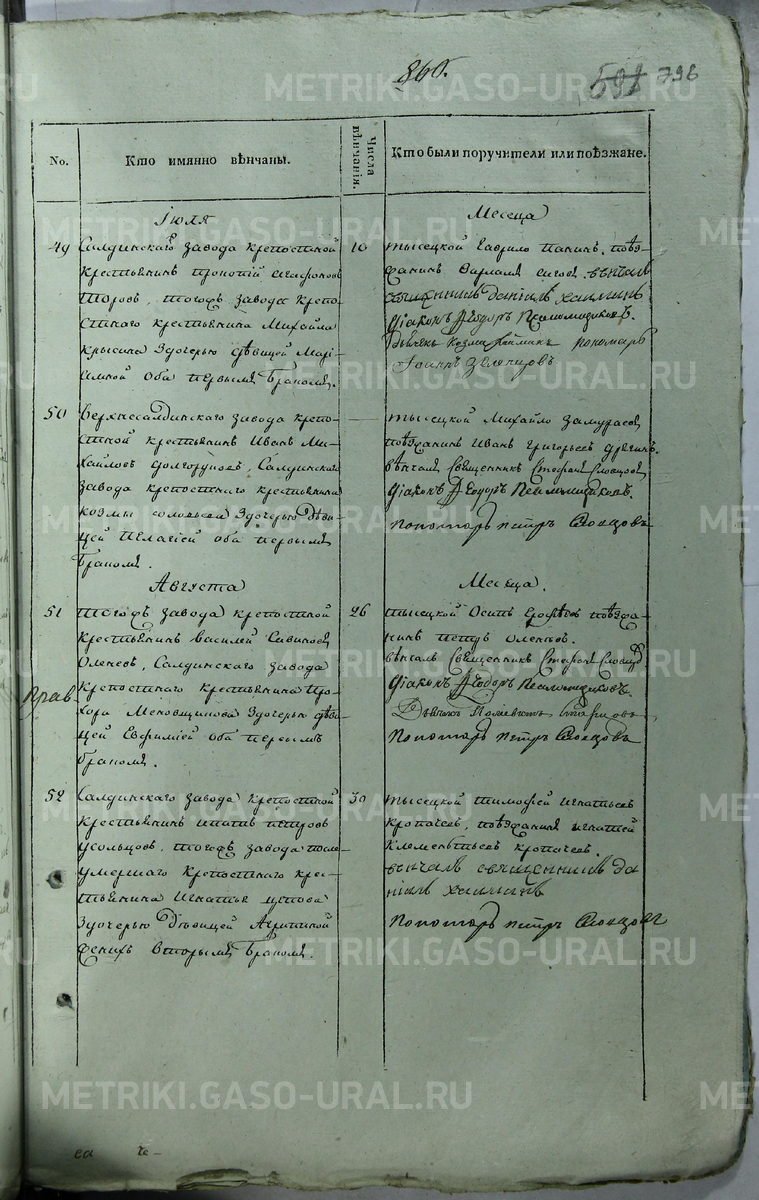 860.
591 796
No.
Кто имянно вѣнчаны.
Числа вѣнчанія.
Кто были поручители или поѣзжане.
Iюля
Месеца
49
Салдинскаго завода крепостной
крестьянинъ
Торовъ, тогожъ завода крепо-
стнаго крестьянина Михайла
Крысина здочерью дѣвицей Марі-
амной оба первымъ бракомъ.
10
тысецкой Гаврило Панинъ, поѣз-
жанинъ вѣнчалъ
священникъ Даніилъ Хаминъ
Діаконъ Ѳеодоръ
пономарь
Iоаннъ Зеленцовъ
50
Верхнесалдинскаго завода крепо-
стной крестьянинъ Иванъ Ми-
хайловъ Долгоруковъ, Салдинскаго
завода крепостнаго крестьянина
Козмы Соловьева здочерью дѣви-
цей Пелагіей оба первымъ
бракомъ.
—
тысецкой Михайло Замураевъ
поѣзжанинъ Иванъ Григорьевъ
вѣнчалъ Священникъ Стефанъ Словцовъ
Діаконъ Ѳеодоръ
пономарь петръ Словцовъ
Августа
Месеца.
51
тогожъ завода крепостной
крестьянинъ Василей Савиновъ
Оленевъ, Салдинскаго завода
крепостнаго крестьянина Про-
хора Меновщикова здочерью дѣви-
цей Евфимией оба первымъ
бракомъ.
прав
26
тысецкой Осипъ Ерофѣевъ поѣзжа-
нинъ петръ Оленевъ.
вѣнчалъ Священникъ Стефанъ Словцовъ
Діаконъ Ѳеодоръ
пономарь петръ Словцовъ
52
Салдинскаго завода крепостной
крестьянинъ Ипатъ петровъ
Усольцовъ, тогожъ завода после
умершаго крепостнаго крес-
тьянина Игнатья
здочерью Дѣвицей Агрипиной
женихъ вторымъ бракомъ.
30
тысецкой тимофей Игнатьевъ
Кропачевъ, поѣзжанинъ Игнатей
Клементьевъ Кропачевъ.
вѣнчалъ священникъ Да
ніилъ Хаминъ
пономарь петръ Словцовъ
METRIKI.GASO-URAL.RU